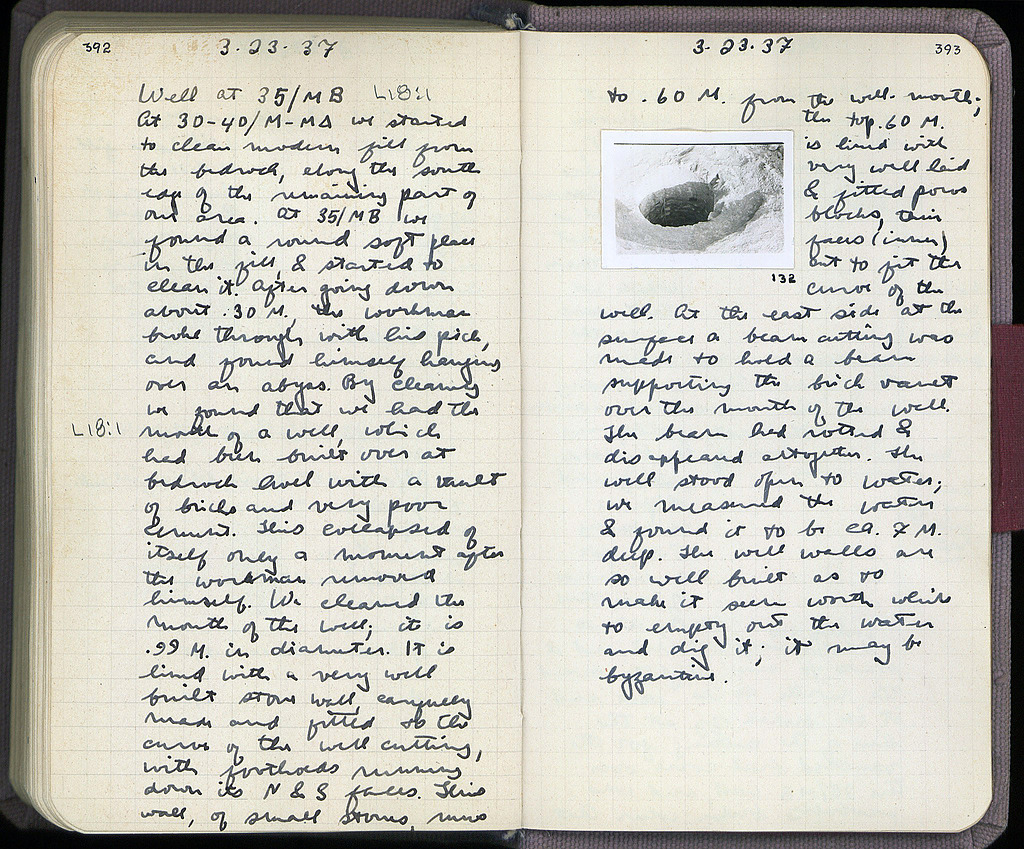 392
3·23·37
Well at 35/MB L18:1
At 30-40/M-MΔ we started
to clean modern fill from
the bedrock, along the south
edge of the remaining part of
our area. At 35/MB we
found a round soft place
in the fill, & started to
clean it. After going down
about .30 M., the workman
broke through with his pick,
and found himself hanging
over an abyss. By cleaning
we found that we had the
L18:1 mouth of a well, which
had been built over at
bedrock level with a vault
of bricks and very poor
cement. This collapsed of
itself only a moment after
the workman removed
himself. We cleaned the
mouth of the well; it is
.99 M. in diameter. It is
lined with a very well
built stone wall, carefully
made and fitted to the
curve of the well cutting,
with footholds running
down its N & S faces. This
wall, of small stones, runs
3·23·37
393
to .60 M. from the well-mouth;
the top .60 M.
is lined with
very well laid
& fitted poros
blocks, their
faces (inner)
cut to fit the
132
curve of the
well. At the east side at the
surface a beam cutting was
made to hold a beam
supporting the brick vault
over the mouth of the well.
The beam had rotted &
disappeared altogether. The
well stood open to water;
we measured the water
& found it to be ca. 7 M.
deep. The well walls are
so well built as to
make it seem worth while
to empty out the water
and dig it; it may be
byzantine.